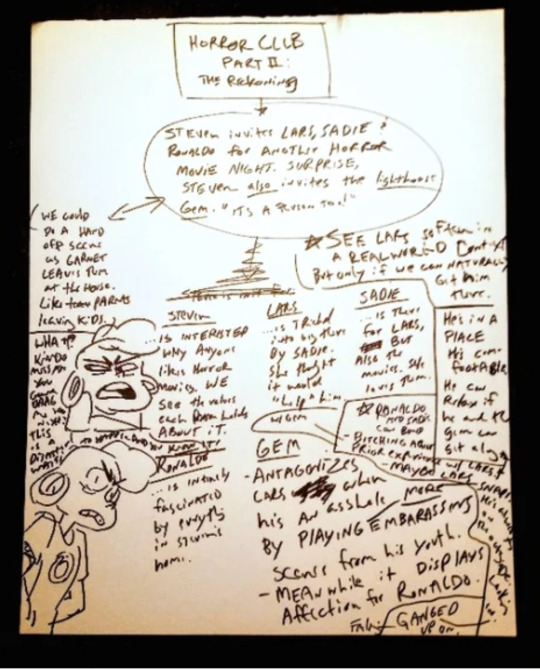 HORROR CLUB
PART II:
The Reckoning
STEVEN invites LARS, SADIE &
RONALDO for ANOTHER HORROR
MOVIE NIGHT. SURPRISE,
STEVEN also invites the lighthouse
Gem. "IT'S A Person Too!"
WE COULD
DO A HAND
OFF SCENE
AS GARNET
LEAVES THEM
AT the House.
Like teen PARENTS
leaving KIDS.
SEE LARS SOFTEN IN
A REAL WORLD Context
But only if we can NATURALLY
Get him
there.
STEVEN
...IS INTERESTED
WHY Anyone
likes Horror
Movies. WE
SEE the values
each PERSON holds
ABOUT IT.
LARS
...is TRICKED
into being there
by SADIE.
She thought
it would
"help" him
SADIE
...is there
for LARS,
BUT
Also the
movies. She
loves them.
HE'S IN A
PLACE
He's com-
footable.
He can
Relax if
he and the
gem can
Get along
WHAT
KIND
YOU
THIS
IS A
RONALDO
...is intensely
fascinated
by everything
in STEVEN'S
home.
w/ GEM
RONALDO
AND SADIE
CAN BOND
BITCHING ABOUT
PRIOR experience w/ LARS
- MAYBE LARS
GEM
- ANTAGONIZES
LARS when
he's AN ASSHOLE
BY PLAYING EMBARASSING
MORE
Scenes from his youth.
- MEANWHILE it DISPLAYS
Affection for RONALDO.
GANGED
UP ON.